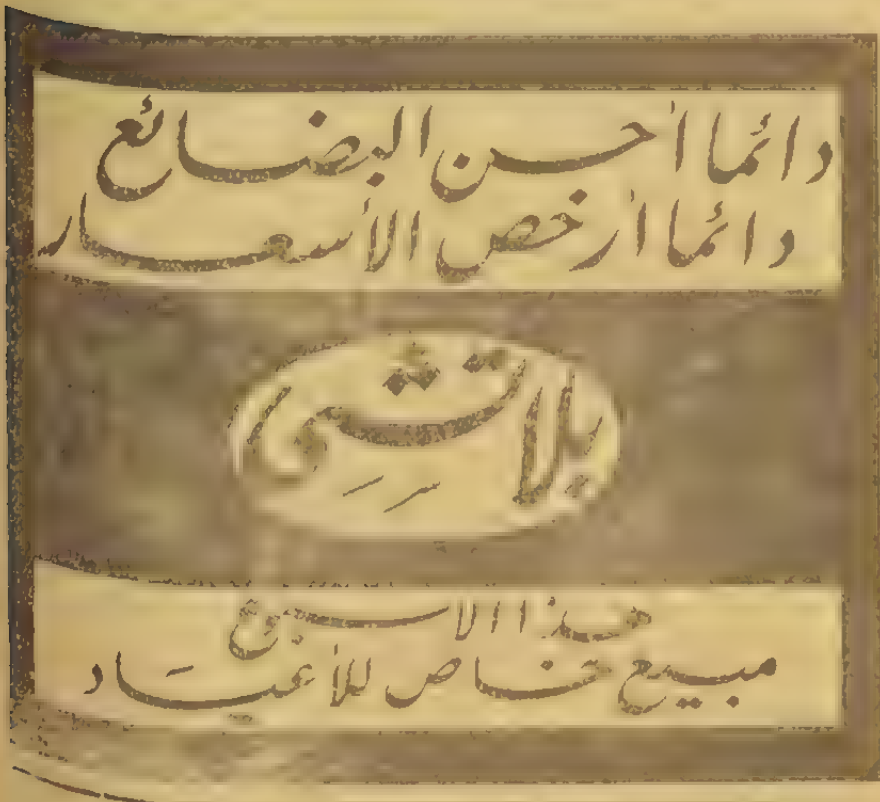 دائما أحسن البضائع
دائما أرخص الأسعار
بلاتشى
هذا الاسبوع
مبيع خاص للأعياد